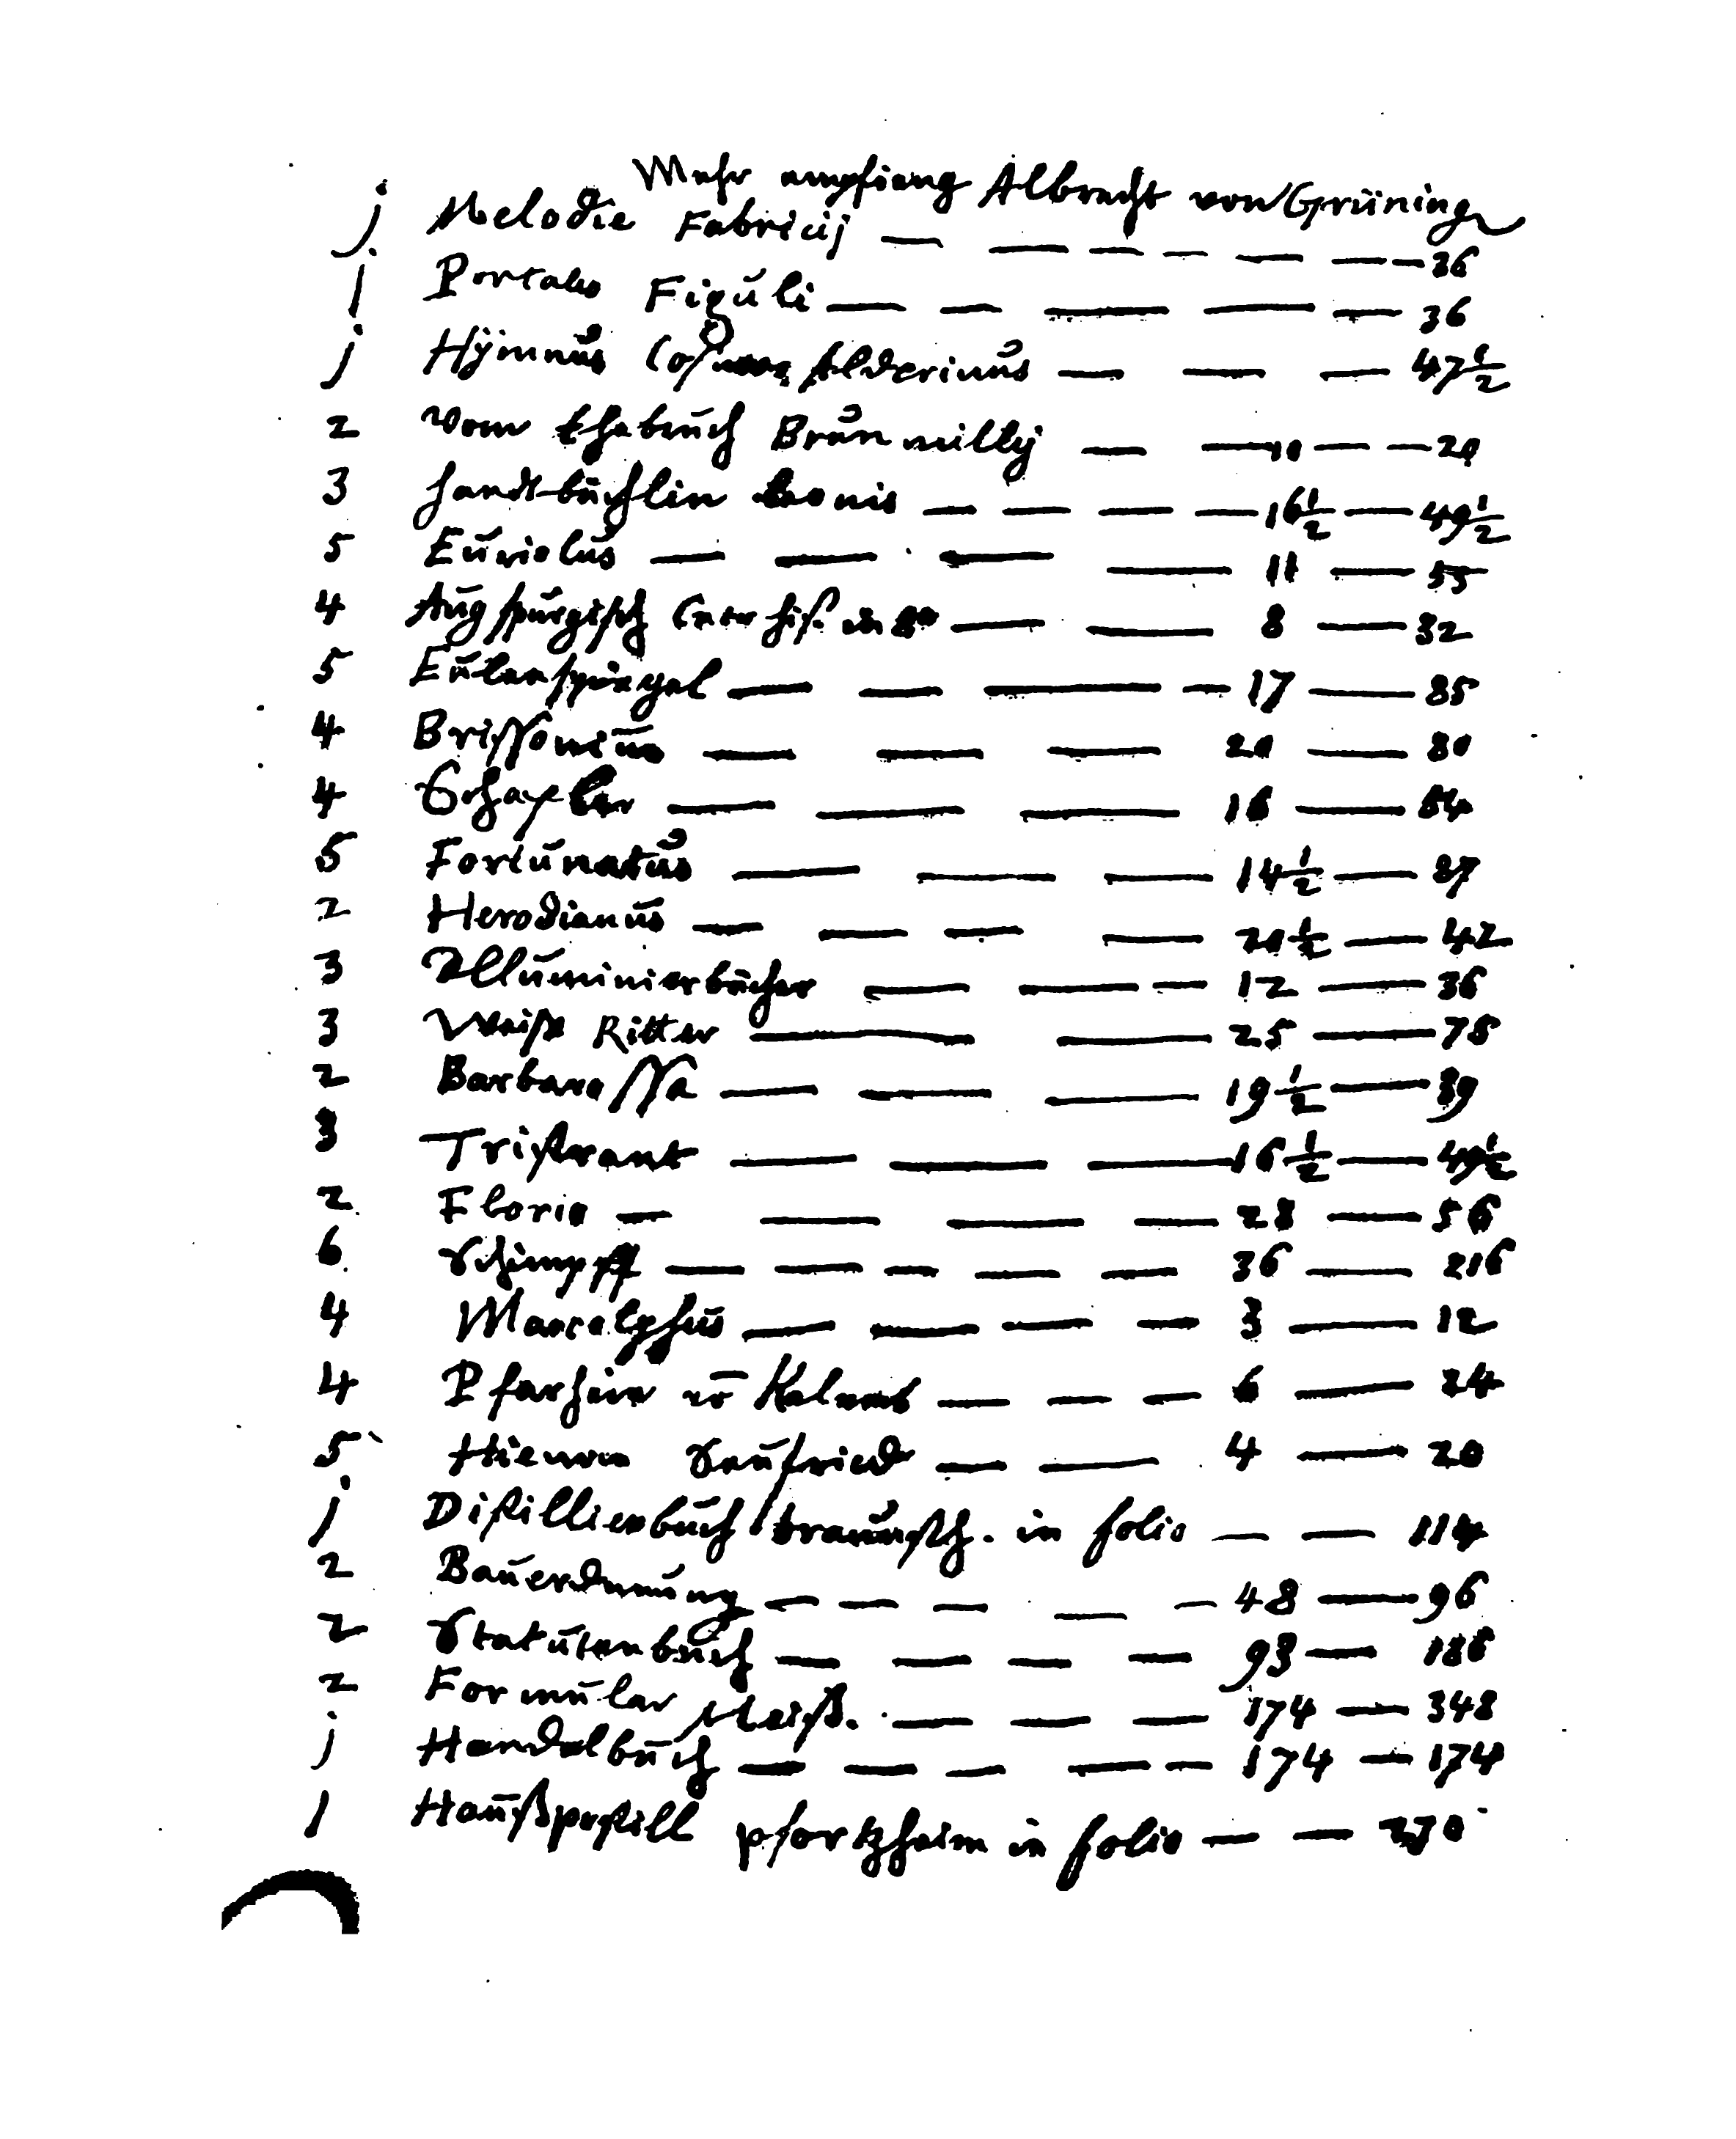 Mehr empfieng Albrecht von Grüning
j Melodie Fabricij — — — — — — — 36
1 Portalis Figuli — — — — — 36
j Hÿmnus Cosmas Alderinus — — — 47½
2 vom Ehebuch Brunnuillij — — 10 — — 20
3 handtbüchlin Leonis — — — — 16½ — 49½
5 Euriolus — — — — 11 — 55
4 Augspurgisch in 8° — — 8 — 32
5 Eulenspiegel — — — — 17 — 85
4 Brissonius — — — 20 — 80
4 — — — 16 — 64
5 Fortunatus — — — 14½ — 87
2 Herodianus — — — — 20½ — 42
3 Illuminierbücher — — — 12 — 36
3 Weiss Ritter — — 25 — 75
2 Barbarossa — — — 19½ — 39
3 Tristrant — — — 16½ — 49½
2 Florio — — — — 28 — 56
6 Schimpff — — — — — 36 — 216
4 Marcolphus — — — — 3 — 12
4 Pfarheim vō Kalenb — — — 6 — 24
5 Hienen Seufried — — 4 — 20
j Distillierbuch braunsch. in folio — — 114
2 Bauerdnung — — — — — 48 — 96
2 Statutenbuch — — — — 93 — 186
2 Formular Meiß. — — — 174 — 348
j Handelbuch — — — — — 174 — 174
1 Haußpostill pfortzheim in folio — — 270